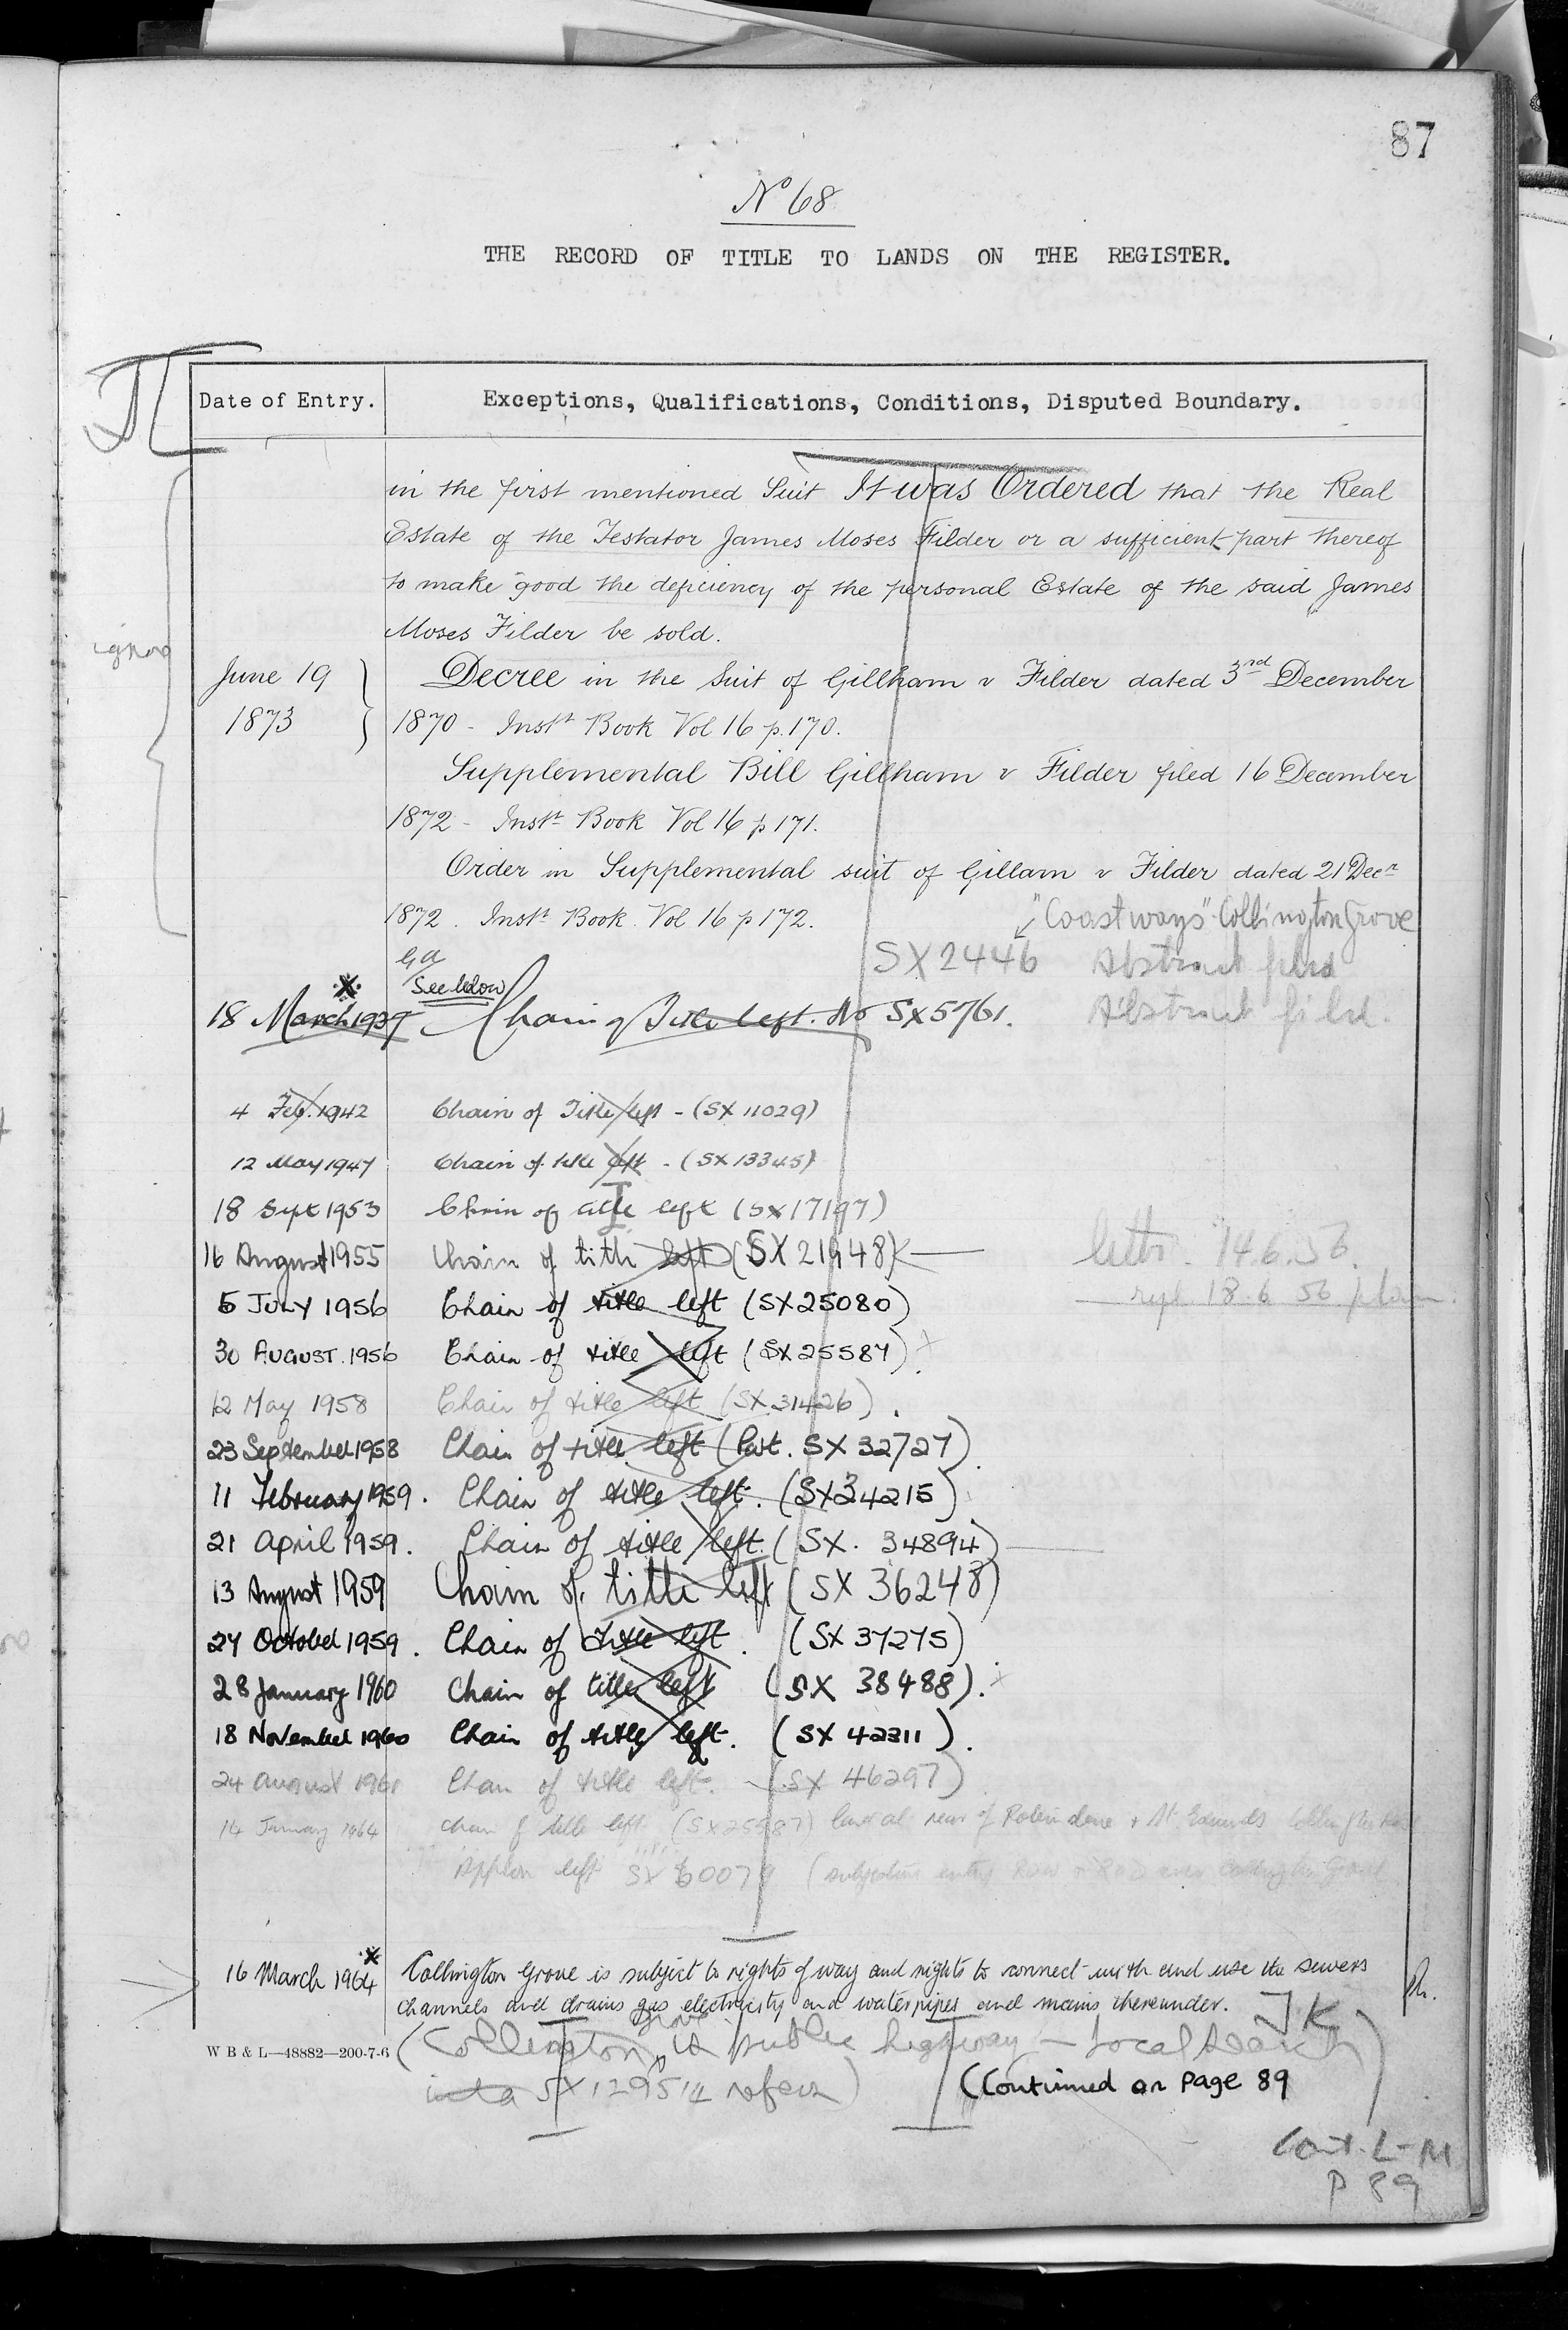 87
No 68
THE RECORD OF TITLE TO LANDS ON THE REGISTER.
Date of Entry. Exceptions, Qualifications, Conditions, Disputed Boundary.
in the first mentioned Suit It was Ordered that the Real
Estate of the Testator James Moses Filder or a sufficient part thereof
to make good the deficiency of the personal Estate of the said James
Moses Filder be sold.
June 19 Decree in the Suit of Gillham v Filder dated 3rd December
1873 1870 - Inst Book Vol 16 p. 170.
Supplemental Bill Gillham v Filder filed 16 December
1872 - Inst Book Vol 16 p 171.
Order in Supplemental suit of Gillam v Filder dated 21 Decr
1872. Inst Book Vol 16 p 172. "Coastways" Collington Grove
SX 2446 Abstract filed
See below
18 March 1937 Chain of Title left. No SX5761. Abstract filed.
4 Feb. 1942 Chain of Title left - (SX 11029)
12 May 1947 Chain of title left - (SX 13345)
18 Sept 1953 Chain of title left (SX17197)
16 August 1955 Chain of title left (SX 21948)
letter 14.6.56.
5 JULY 1956 Chain of title left (SX25080)
18.6.56 plan.
30 AUGUST. 1956 Chain of title left (SX25587)
12 May 1958 Chain of title left (SX 31426).
23 September 1958 Chain of title left (Part. SX 32727)
11 February 1959. Chain of title left. (SX34215)
21 April 1959. Chain of title left. (SX. 34894)
13 August 1959 Chain of title left (SX 36248)
27 October 1959. Chain of title left. (SX 37275)
28 January 1960 Chain of title left (SX 38488).
18 November 1960 Chain of title left. (SX 42311).
24 August 1961 Chain of title left. (SX 46297)
14 January 1964 Chain of title left (SX25587) land at rear of
left
16 March 1964 Collington Grove is subject to rights of way and rights to connect with and use the sewers
channels and drains gas electricity and water pipes and mains thereunder. JK
(Collington Grove is public highway - Local Search
W B & L—48882—200-7-6
SX 129514 refers)
(Continued on Page 89
Cont. L-M
P 89